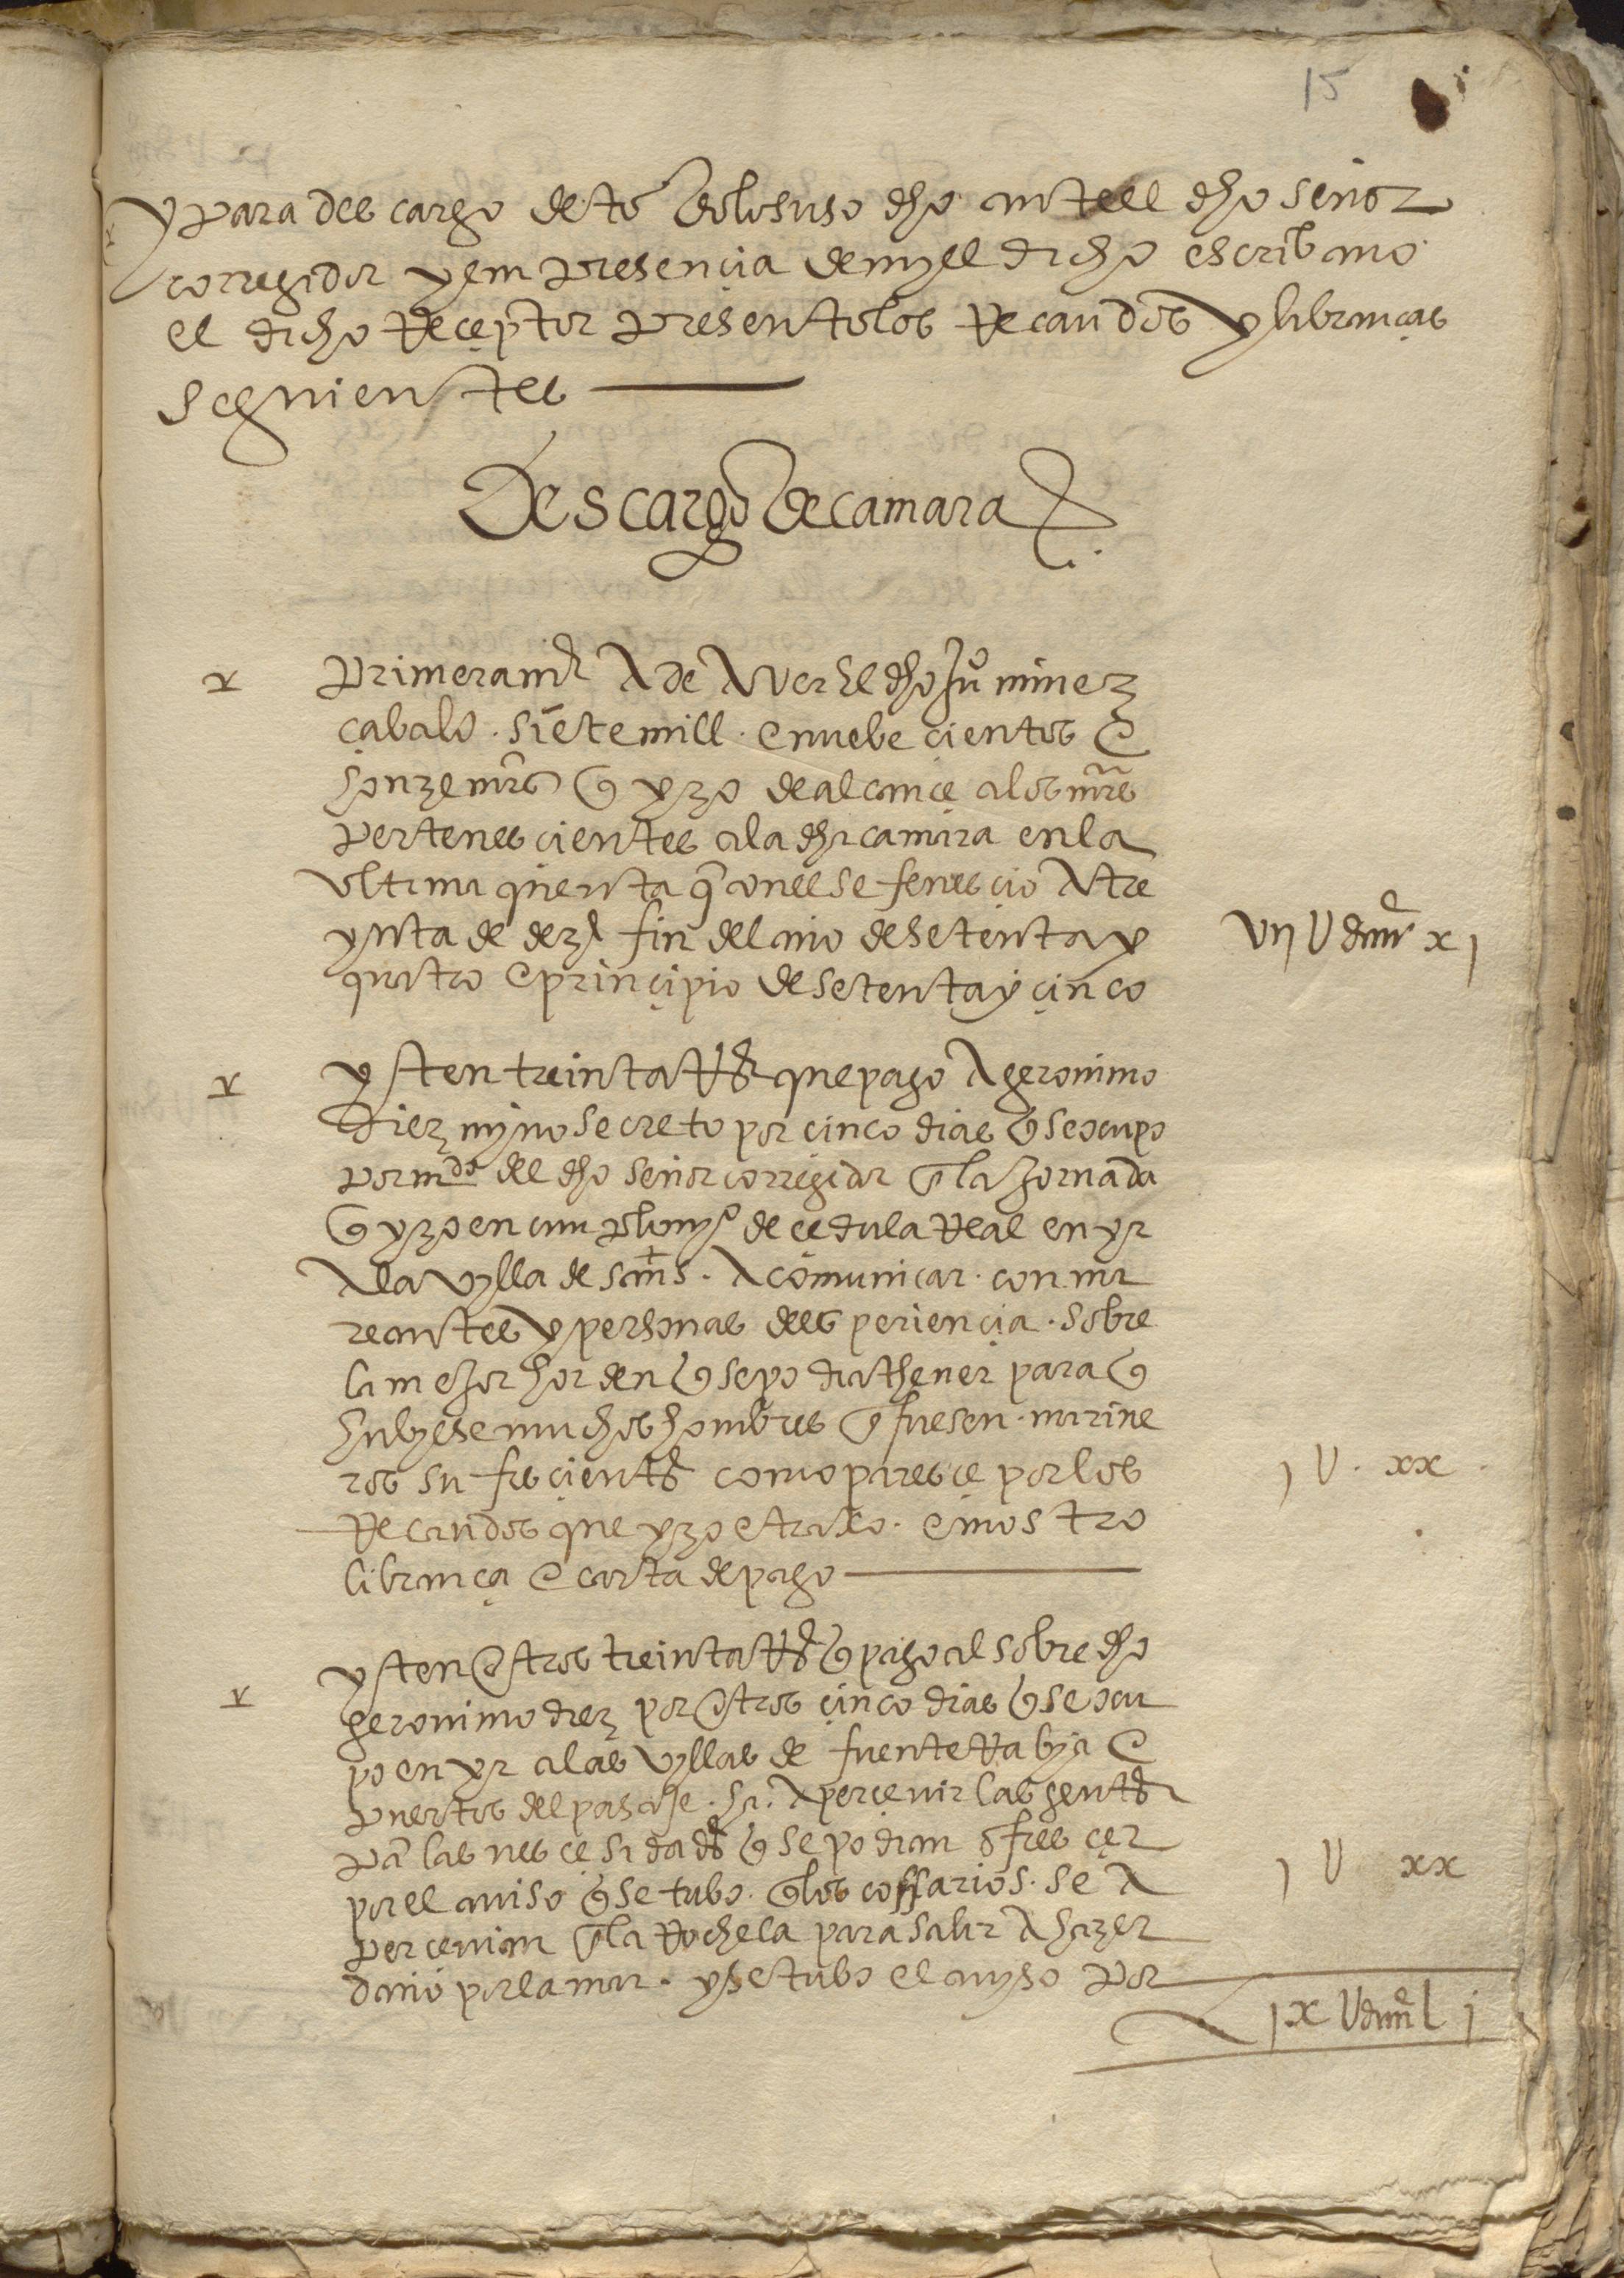 15
y para descargo de to dolosuso dho ante el dho señor
corregidor y em presençia de my el dicho escribano
el dicho Reçeptor presento los Recaudos y libranças
seguientes
Descargo de camara
primeramte A de Aver El dho Juo nunez
çabalo . siete mill . e nuebe cientos e
honze mrs q yzo de alcançe a los mrs
pertenescientes a la dha camara en la
vltima quenta q con el se fenesçio A tre
ynta de dezе fin del año de setenta y
quatro e prinçipio de setenta y çinco
vij U dcccc xj
yten treinta Rs que pago A geronimo
diez myno secreto por cinco dias q se ocupo
por mdo del dho señor corregidor en la Jornada
q yzo en cumplimyo de cedula Real en yr
A la vylla de san s . A comunicar . con ma
reantes y personas de esperiençia . sobre
la mejor horden q se podia thener para q
hubyese muchos hombres q fuesen . marine
ros sufiçientes como paresçe por los
Recaudos que yzo e traxo . e mostro
librança e carta de pago
j U . xx
yten otros treinta Rs q pago al sobre dho
geronimo diez por otros çinco dias q se ocu
po en yr a las vyllas de fuenteRabya e
puertos del pasaje . A perçevir las gentes
pa las nesçesidades q se podian ofresçer
por el aviso q se tubo . q los cossarios . se A
percevian en la Rochela para salir A hazer
daño por la mar . y se tubo el avyso por
j U xx
jx U dcccc l j